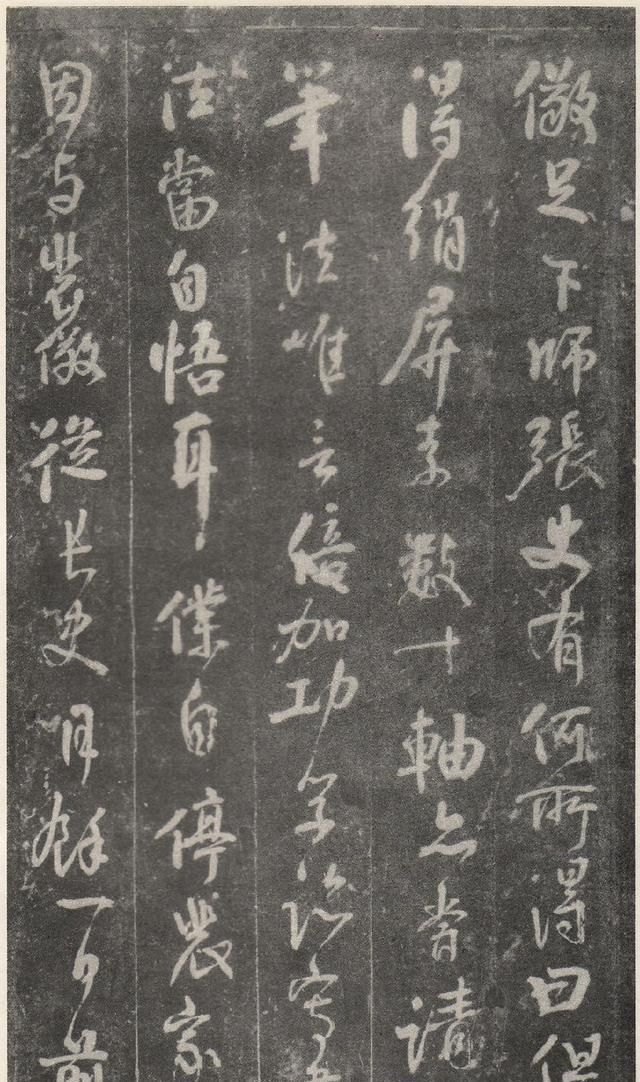 儆足下師張史有何所得曰但
得絹屏素數十軸亦嘗請
筆法唯言倍加功學臨寫
法當自悟耳僕自停裴家
因与裴儆從長史月餘一日前